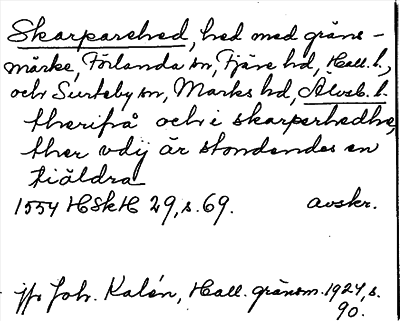 Skarparehed, hed med gräns-
märke, Förlanda sn, Fjäre hd, Hall. l.,
och Surteby sn, Marks hd, Älvsb. l.
therifrå och i skarperhedhe,
ther vdij är stondendes en
tiäldra
1554 HSkH 29, s. 69. avskr.
jfr Joh. Kalén, Hall. gränsm. 1924, s.
90.